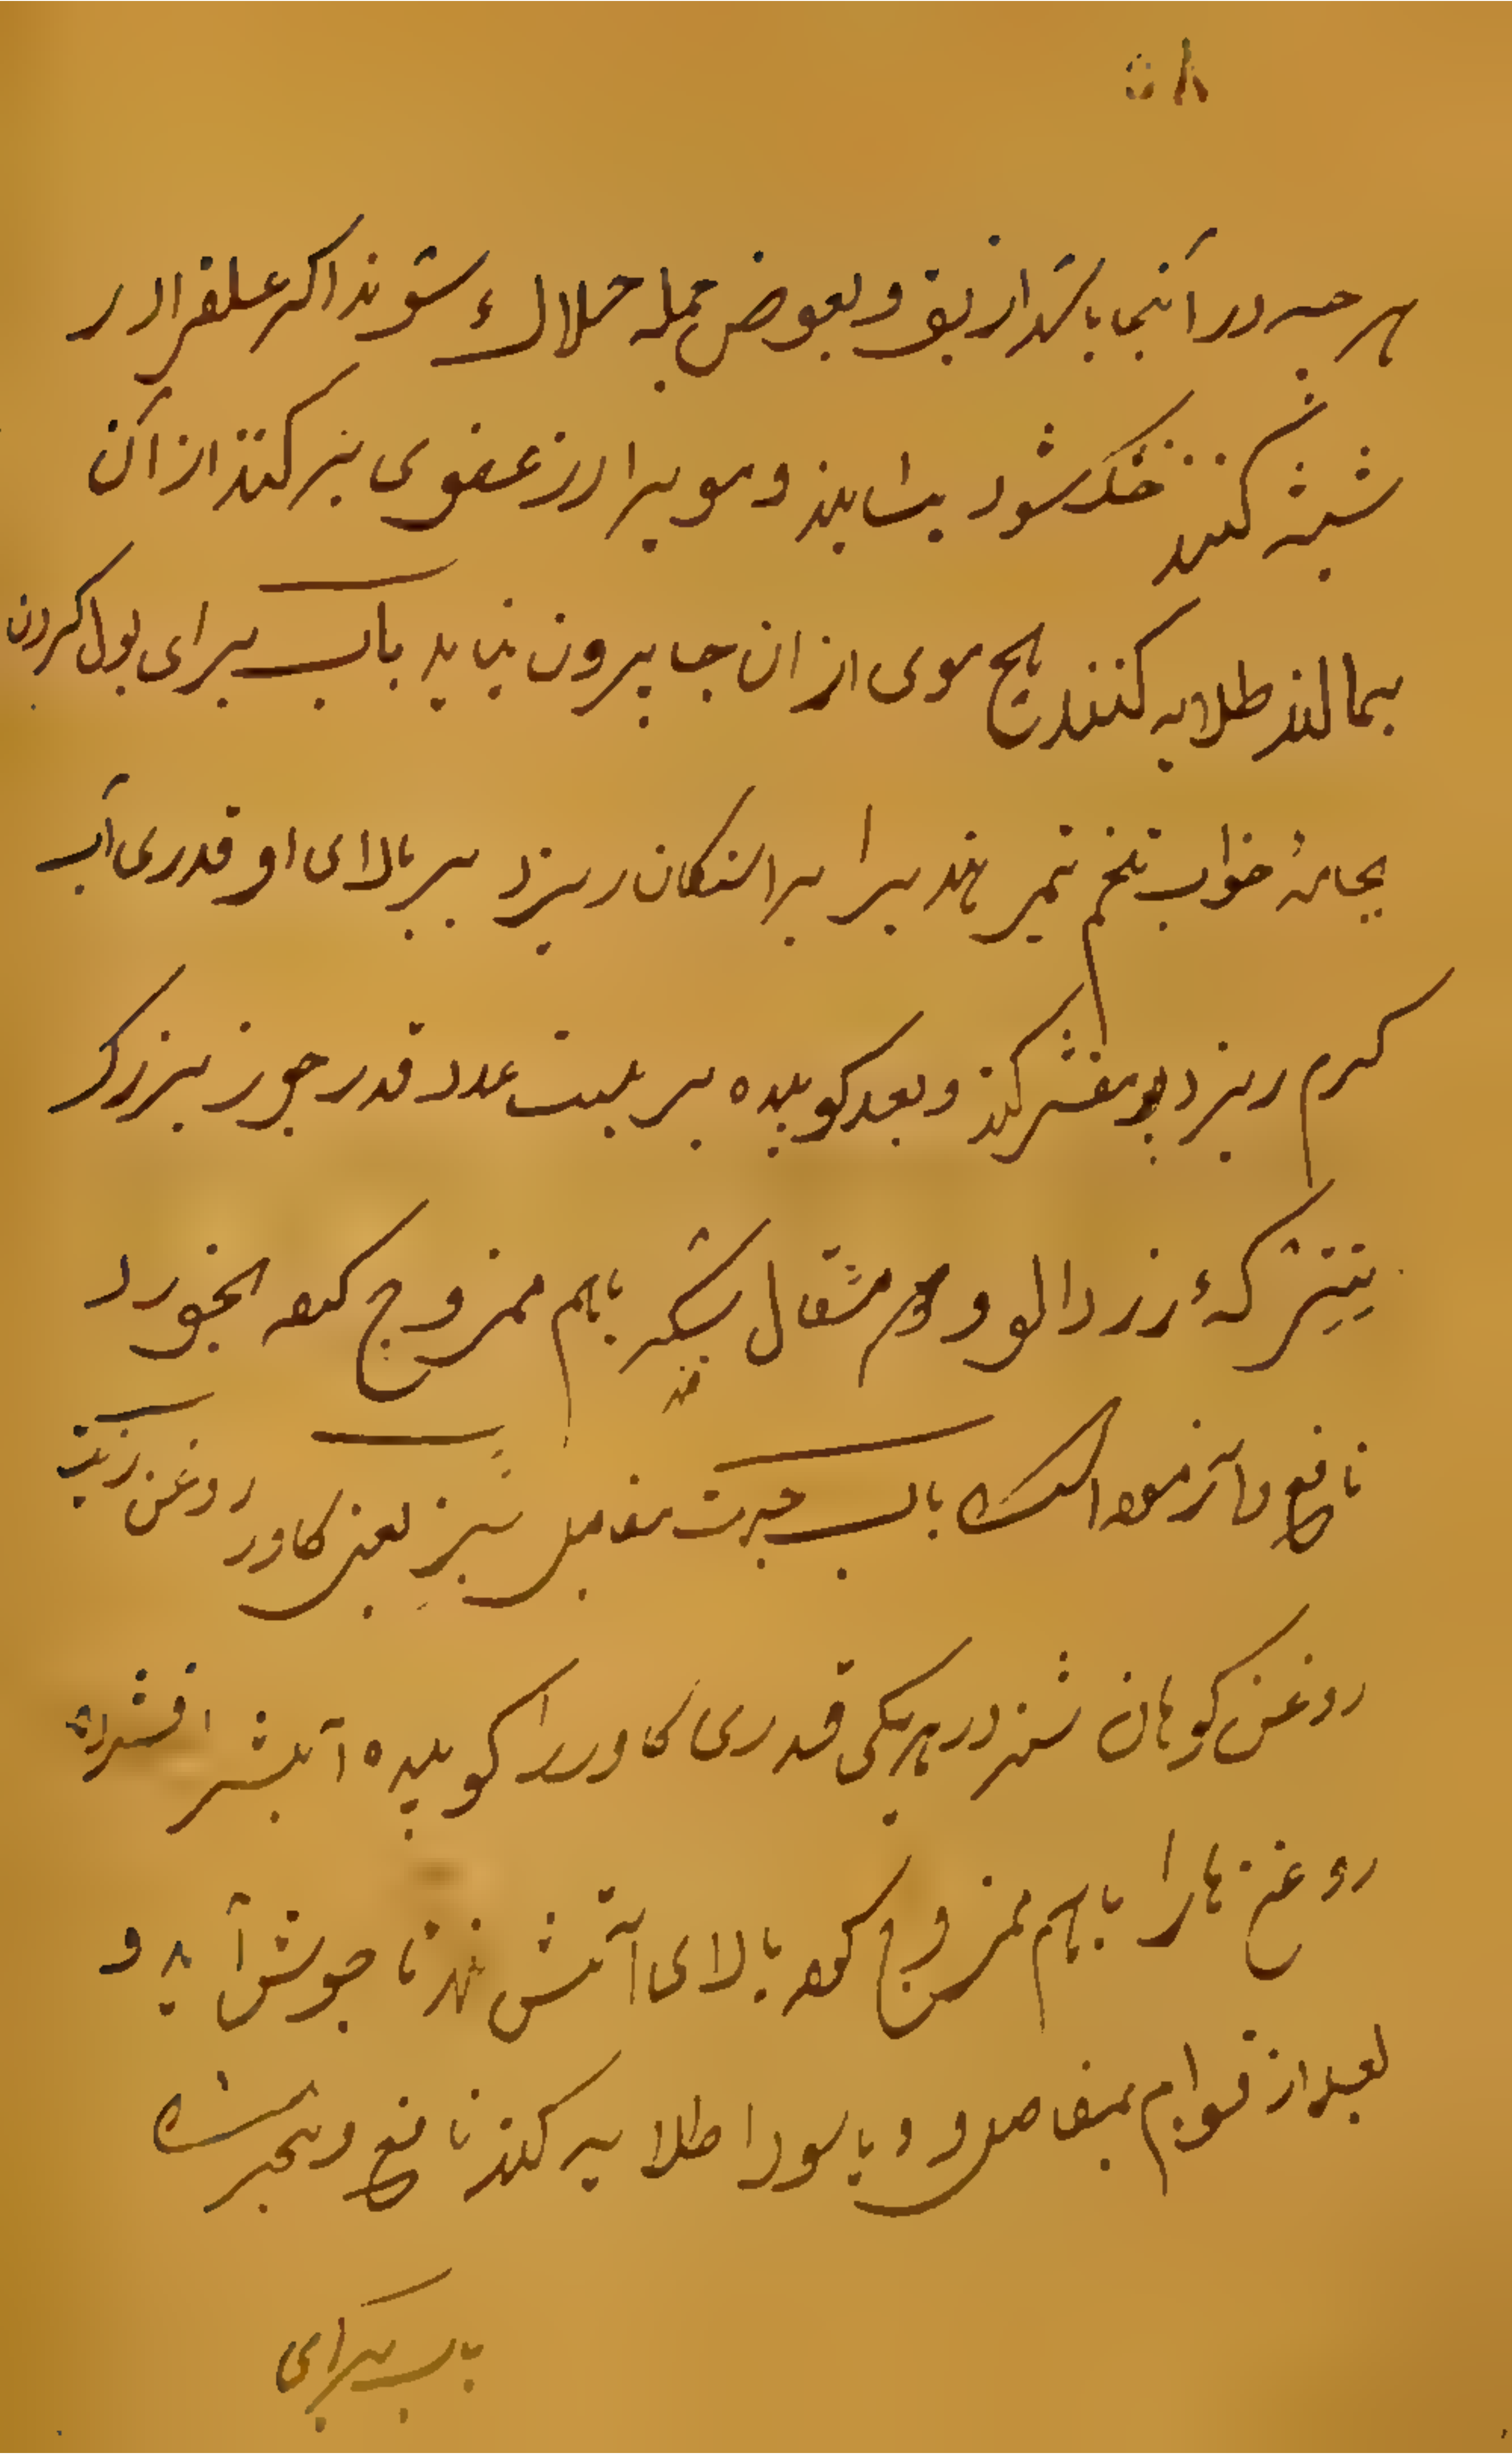 هر چه در آنجا باشد از بق و بعوض جمله حلاک ء شوند اکر علفرا در
شیشه کنند خشک شود بسایند و مویرا از عضوی بر کنند از آن
بمالند طلا به کنند هیچ موی از ان جا بیرون نیاید باب برای بول کردن
بجامهٔ خواب تخم تمر هندیرا براستکان ریزد بر بالاای او قدری آب
کرم ریزد مقشر کند و بعد کوبیده بر بیست عدد قدر جوز بزرک
شیره کهٔ زردالو و مثقال شکر باهم ممزوج کرده بخورد
نافع و آزموده است باب جهت مفاصل سبز یعنی کاور روغن زیت
روغن کوهان شتر در هر یکی قدری کاوررا کوبیده آبش افشرده
روغن هارا باهم ممزوج کرده بالای آتش نهد تا جوش آید و
بعد از قوام بمفاصل و و باسورا طلا به کنند نافع و مجربست
باب برای